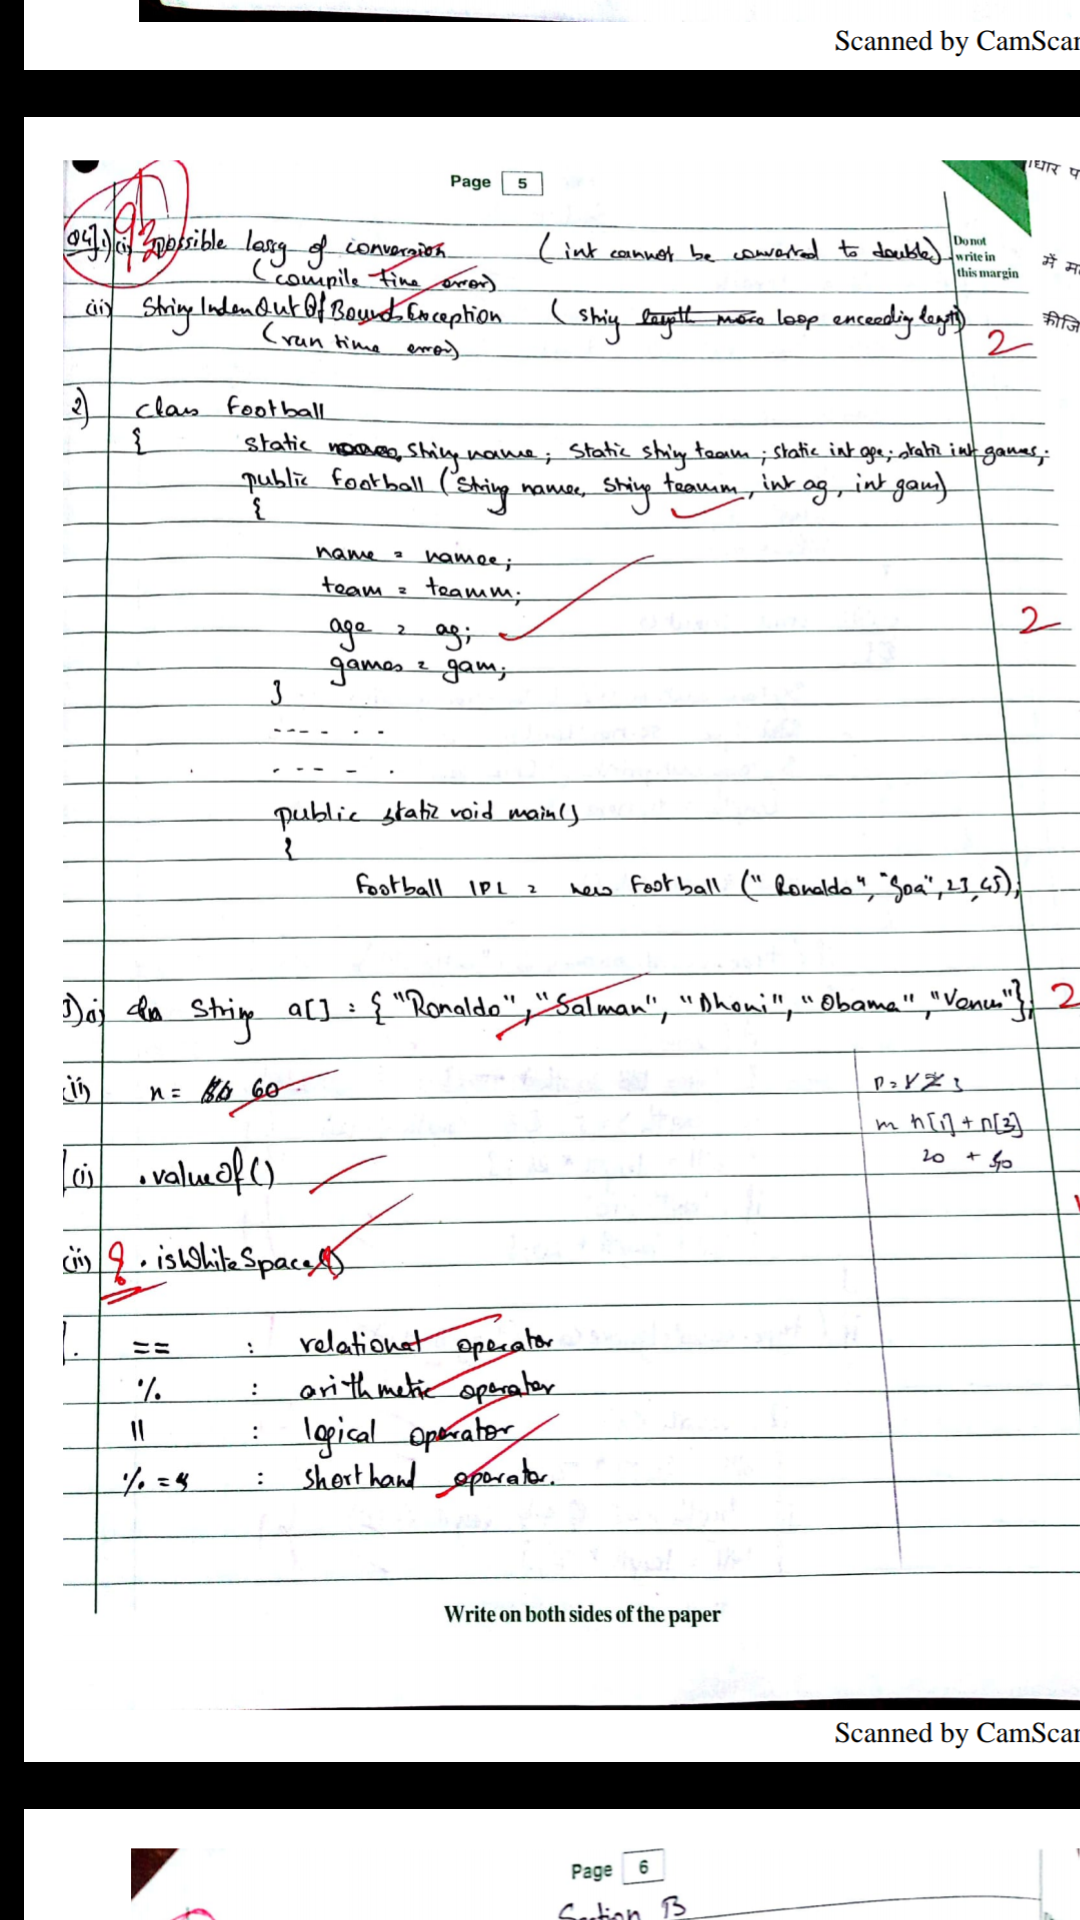 Scanned by CamScan
Page 5
ाधार प
Do not
write in
this margin
में म
कीजि
93
Q4] 1) (i) possible lossg of conversion ( int cannot be converted to double)
(compile time error)
(ii) String IndenOutOfBoundsException ( string length more loop exceeding length)
(run time error)
2
2) class Football
{ static String name; Static string team; static int age; static int games;
public football (String namee, String teamm, int ag, int gam)
{
name = namee;
team = teamm;
age = ag;
games = gam;
}
2
- - - - - -
- - - - -
public static void main()
{
football IPL = new Football ("Ronaldo", "Goa", 23, 45);
3) i) String a[] = { "Ronaldo", "Salman", "Dhoni", "Obama", "Venus"}; 2
(ii) n = 60
m n[1] + n[3]
20 + 40
(i) .valueOf()
(ii) .isWhiteSpace()
== : relational operator
% : arithmetic operator
|| : logical operator
% = : shorthand operator.
Write on both sides of the paper
Scanned by CamScan
Page 6
Section B